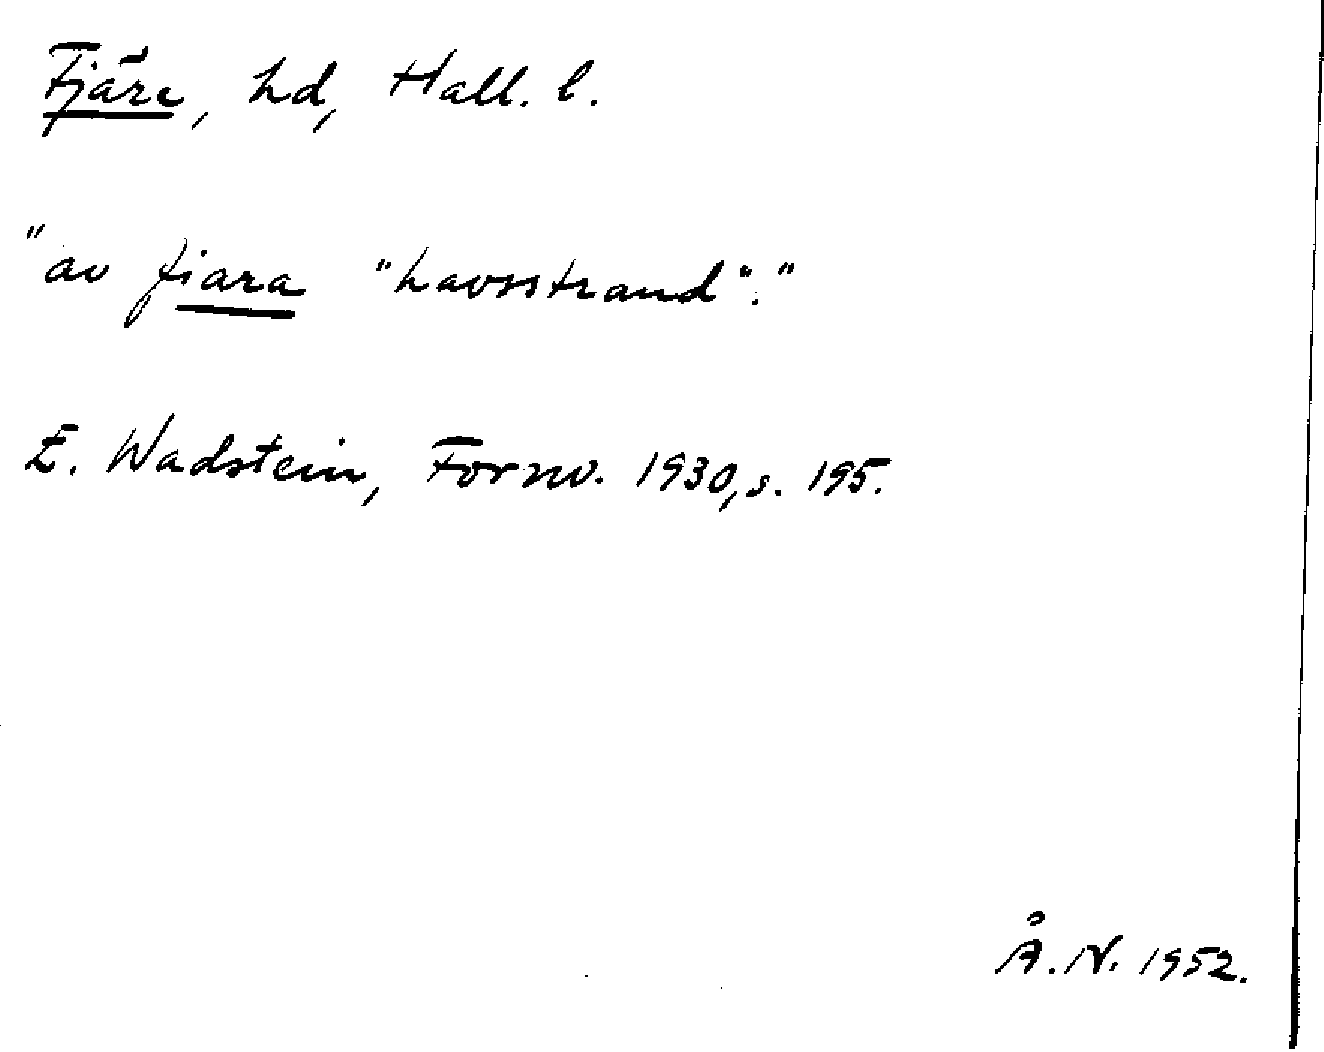 Fjäre, hd, Hall. l.
"av fiara "havsstrand"."
E. Wadstein, Fornv. 1930, s. 195.
Å. N. 1952.